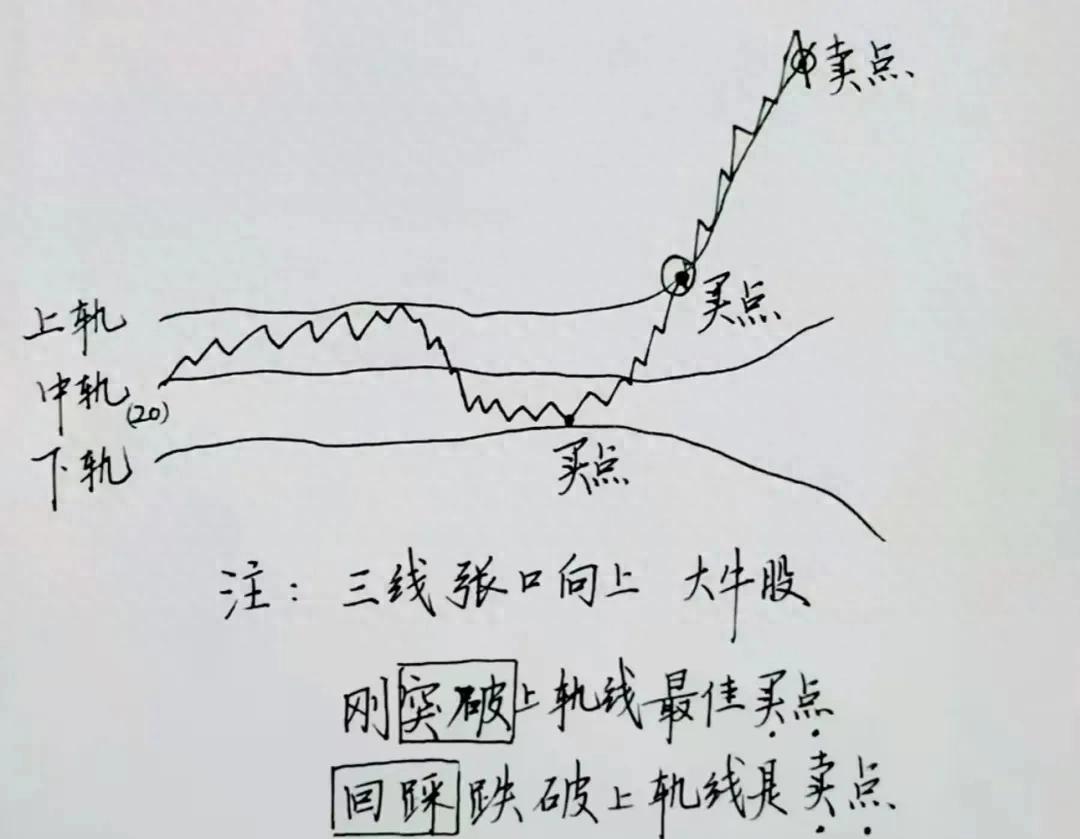 卖点
买点
上轨
中轨(20)
下轨
买点
注：三线张口向上 大牛股
刚突破上轨线最佳买点
回踩跌破上轨线是卖点